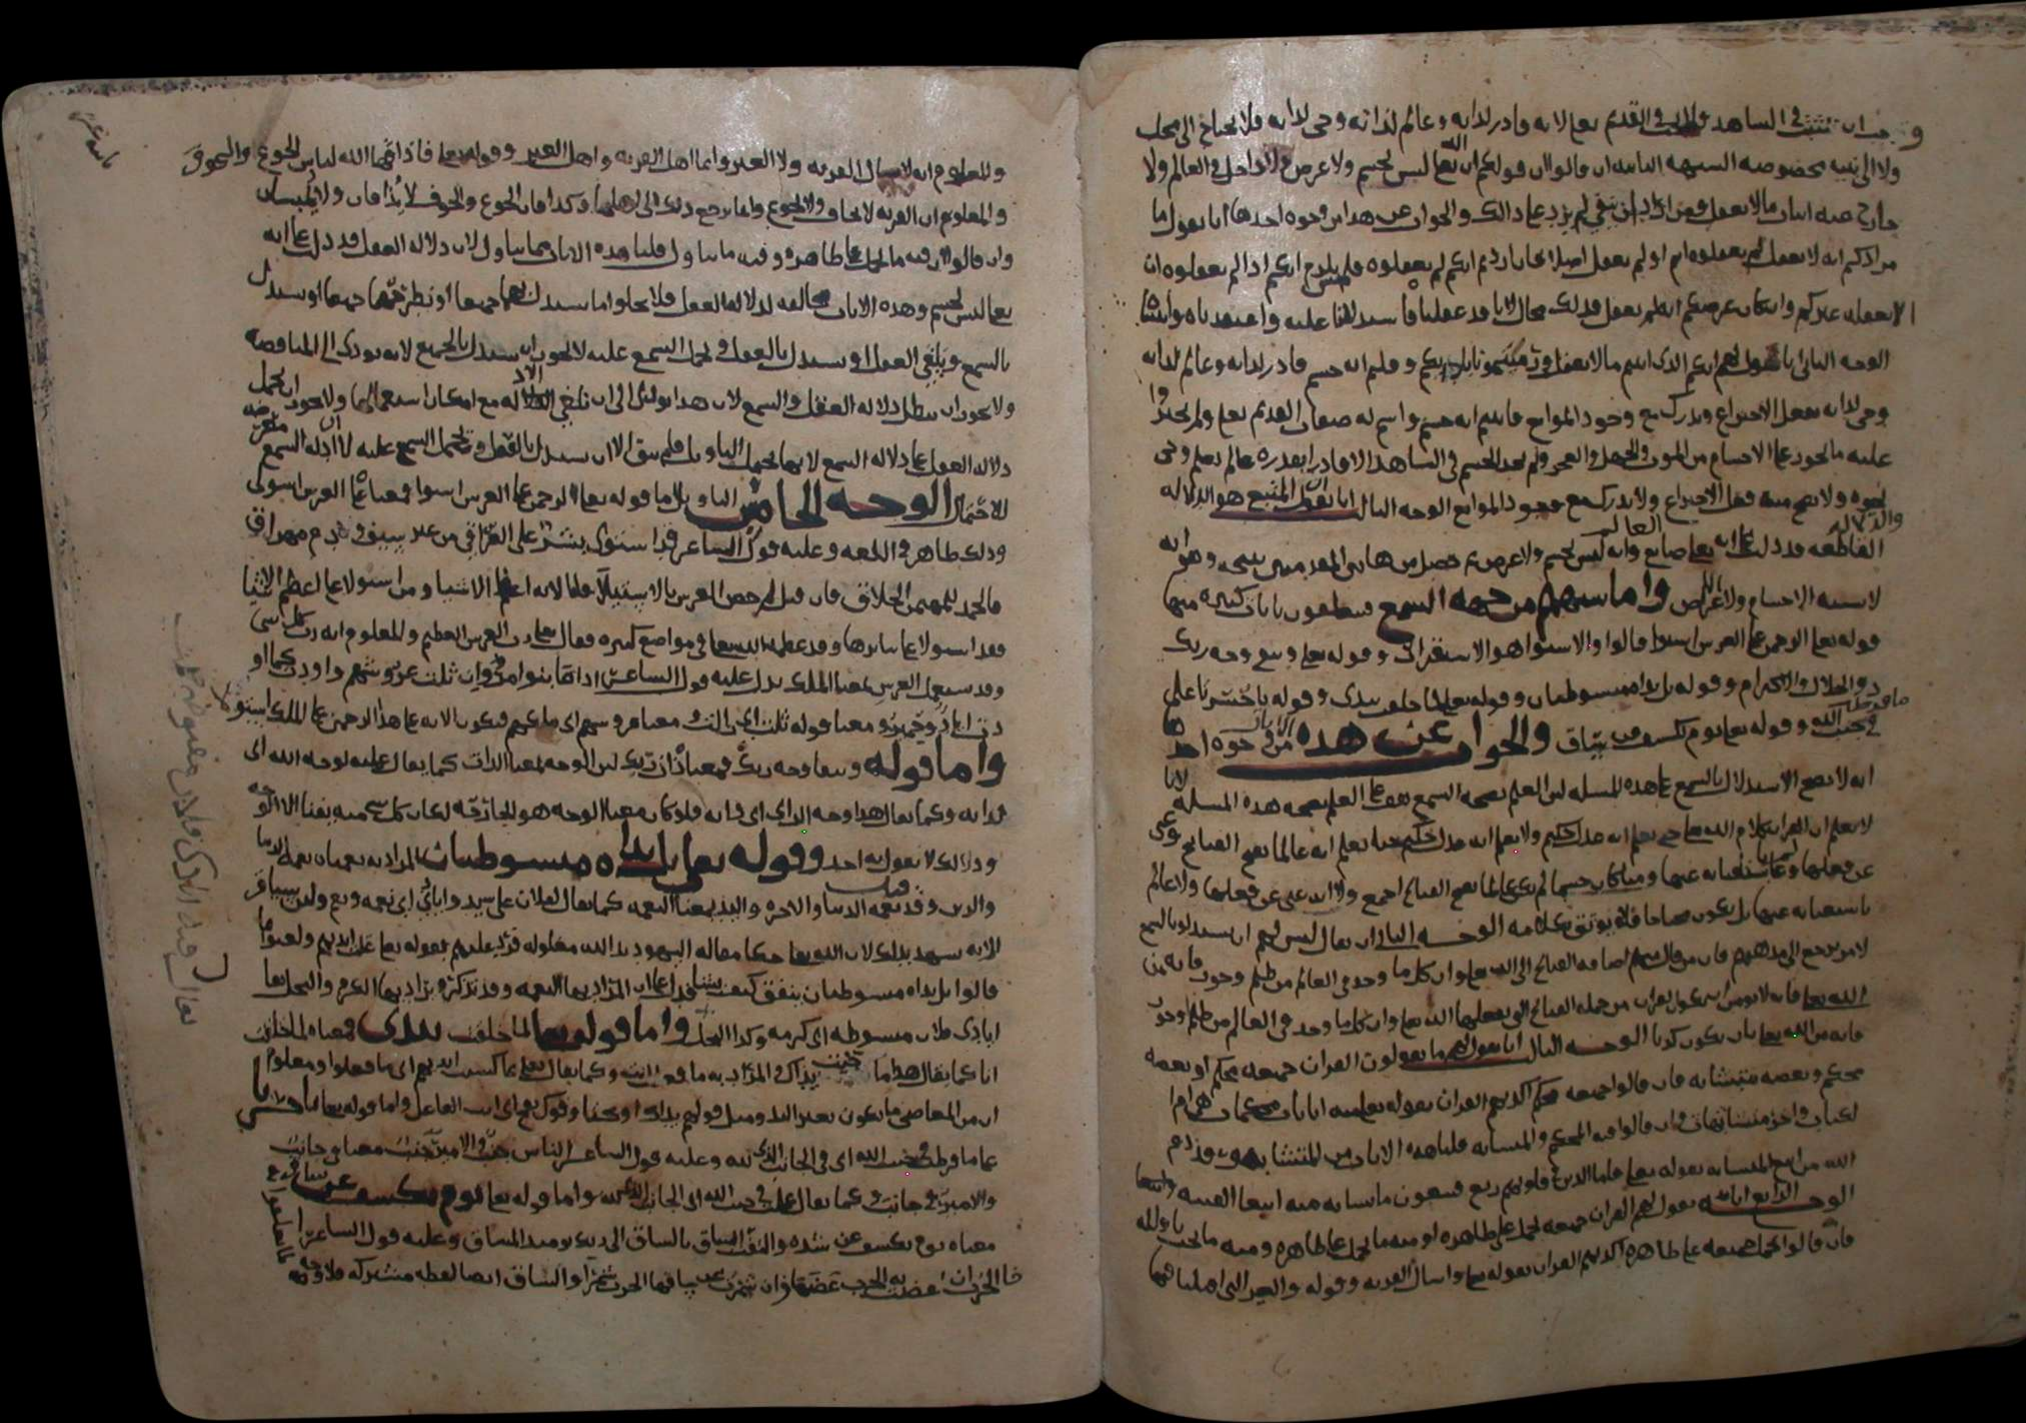 وجب ان تثبت في الشاهد وليست في القديم تعالى لانه قادر لذاته وعالم لذاته وحي لذاته فلا يحتاج الى محل
ولا الى بنيه مخصوصه الشبهه الثانيه ان قالوا ان قولكم ان الله تعالى ليس بجسم ولا عرض ولا داخل في العالم ولا
خارج عنه اثبات ما لا يعقل ومن اراد ان ينفي لم يزد على ذلك والجواب عن هذا من وجوه احدها انا نقول ما
مرادكم انه لا يعقل لم يعقلوه انتم او لم يعقل اصلا فان اردتم انكم لم تعقلوه فلم يلزم انكم اذا لم تعقلوه ان
لا يعقله غيركم وان كان غرضكم انه لم يعقل فذلك محال لانا قد عقلناه واستدللنا عليه واعتقدناه واثبتناه
الوجه الثاني انا نقول لهم انكم الذي اثبتم ما لا يعقل وقلتم انه جسم قادر لذاته وعالم لذاته
وحي لذاته يفعل الاختراع ويدرك مع وجود الموانع فاثبتم انه جسم واسم له صفات القديم تعالى ولم تجيزوا
عليه ما يجوز على الاجسام من الموت والجهل والعجز ولم نجد الجسم في الشاهد الا قادر بقدره عالم بعلم وحي
بحيوه ولا يصح منه فعل الاختراع ولا يدرك مع وجود الموانع الوجه الثالث انا نقول المتبع هو الدلاله
والدلاله القاطعه قد دلت على انه تعالى صانع العالم وانه ليس بجسم ولا عرض ثم حصل من هاتين المقدمتين نتيجه وهو انه
لا يشبه الاجسام ولا الاعراض واما شبههم من جهه السمع فيتعلقون بايات كثيره منها
قوله تعالى الرحمن على العرش استوى قالوا والاستوا هو الاستقرار وقوله تعالى ويبقى وجه ربك
ذو الجلال والاكرام وقوله بل يداه مبسوطتان وقوله تعالى لما خلقت بيدي وقوله يا حسرتا على ما فرطت
في جنب الله وقوله تعالى يوم يكشف عن ساق والجواب عن هذه الايات من وجوه احدها
انه لا يصح الاستدلال بالسمع على هذه المسله لان العلم بصحه السمع يقف على العلم بصحه هذه المسله لانا
لا نعلم ان القران كلام الله تعالى حتى نعلم انه عدل حكيم ولا نعلم انه عدل حكيم حتى نعلم انه عالم بقبح القبائح وغني
عن فعلها وعالم باستغنائه عنها ومتى كان جسما لم يكن عالما بقبح القبائح اجمع ولا غني عن فعلها ولا عالم
باستغنائه عنها بل يكون محتاجا فلا يوثق بكلامه الوجه الثاني ان يقال ليس لهم ان يستدلوا بالسمع
لامر يرجع الى مذهبهم فان من قال منهم اضافه القبائح الى الله تعالى وان كل ما وجد في العالم من ظلم وجور فانه من
الله تعالى فانه لا يومن ان يكون القران من جمله القبائح التي يفعلها الله تعالى وان كلما وجد في العالم من ظلم وجور
فانه من الله تعالى بان يكون كذبا الوجه الثالث انا نقول لهم ما تقولون القران جميعه محكم او بعضه
محكم وبعضه متشابه فان قالوا جميعه محكم اكذبهم القران بقوله تعالى منه ايات محكمات هن ام
الكتاب واخر متشابهات وان قالوا فيه المحكم والمتشابه قلنا هذه الايات من المتشابه وقد ذم
الله من اتبع المتشابه بقوله تعالى فاما الذين في قلوبهم زيغ فيتبعون ما تشابه منه ابتغا الفتنه وابتغا
الوجه الرابع انا نقول لهم القران جميعه يحمل على ظاهره او منه ما يحمل على ظاهره ومنه ما يجب تاويله
فان قالوا يحمل جميعه على ظاهره اكذبهم القران بقوله تعالى واسال القريه وقوله والعير التي اقبلنا فيها
والمعلوم انه لا يسال القريه ولا العير وانما اهل القريه واهل العير وقوله تعالى فاذاقها الله لباس الجوع والخوف
والمعلوم ان القريه لا تخاف ولا تجوع وانما يرجع ذلك الى اهلها وكذا فان الجوع والخوف لا يذاقان ولا يلبسان
وان قالوا ان فيه ما يحمل على ظاهره وفيه ما يتاول قلنا هذه الايات مما يتاول لان دلاله العقل قد دلت على انه
تعالى ليس بجسم وهذه الايات مخالفه لدلاله العقل فلا يخلو اما يستدل بهما جميعا او نطرحهما جميعا او نستدل
بالسمع ونلغي العقل او نستدل بالعقل ونحمل السمع عليه لا يجوز ان نستدل بالجميع لانه يودي الى المناقضه
ولا يجوز ان نبطل دلاله العقل والسمع لان هذا يودي الى ان نلغي الادله مع امكان استعمالها ولا يجوز ان نحمل
دلاله العقل على دلاله السمع لانها لا تحتمل التاويل فلم يبق الا ان نستدل بالعقل ونحمل السمع عليه لان ادله السمع معرضه
للاحتمال الوجه الخامس التاويل اما قوله تعالى الرحمن على العرش استوى فمعناه على العرش استولى
وذلك ظاهر في اللغه وعليه قول الشاعر قد استوى بشر على العراق من غير سيف ودم مهراق
فالحمد للمهيمن الخلاق فان قيل لم خص العرش بالاستيلا قلنا لانه اعظم الاشيا ومن استولى على اعظم الاشيا
فقد استولى على سايرها وقد عظمه الله تعالى في مواضع كثيره فقال تعالى رب العرش العظيم والمعلوم انه رب كل شي
وقد يستعمل العرش بمعنى الملك يدل عليه قول الشاعر اذا ما بنو مروان ثلت عروشهم واودت كما اودت
اياد وحمير ومعنى قوله ثلت اي زالت ومعنى عروشهم اي ملكهم فيكون الايه على هذا الرحمن على الملك استولى
واما قوله ويبقى وجه ربك فمعناه ذات ربك لان الوجه بمعنى الذات كما يقال فعلته لوجه الله اي
لذاته وكما يقال هذا وجه الراي اي ذاته فلو كان معنى الوجه هو الجارحه لكان كل شي منه يفنى الا الوجه
وذلك لا يقول به احد وقوله تعالى بل يداه مبسوطتان المراد به نعمتاه نعمه الدنيا
والدين وقد قيل نعمه الدنيا والاخره واليد بمعنى النعمه كما يقال لفلان على يد وايادي اي نعمه ونعم وسياق
الايه يشهد بذلك لان الله تعالى حكى مقاله اليهود يد الله مغلوله فرد عليهم بقوله تعالى غلت ايديهم ولعنوا بما
قالوا بل يداه مبسوطتان ينفق كيف يشا فدل على ان المراد بها النعمه وقد تذكر ويراد بها الكرم والبخل يقال
ايادي فلان مبسوطه اي كريمه وكذا البخل واما قوله تعالى لما خلقت بيدي فمعناه لما خلقت
انا كما يقال هذا ما جنت يداك والمراد به ما فعلت انت وكما يقال تعالى بما كسبت ايديهم اي ما فعلوا ومعلوم
ان من المعاصي ما يكون بغير اليد ومثل قولهم يداك اوكتا وفوك نفخ اي انت الفاعل واما قوله تعالى يا حسرتا
على ما فرطت في جنب الله اي في الجانب الذي لله وعليه قول الشاعر الناس جنب والامير جنب معناه في جانب
والامير في جانب وكما يقال على في جنب الله اي الجانب الذي لله واما قوله تعالى يوم يكشف عن ساق
معناه يوم يكشف عن شده والتفت الساق بالساق الى ربك يومئذ المساق وعليه قول الشاعر
اخا الحرب ان عضت به الحرب عضها وان شمرت عن ساقها الحرب شمرا والساق ايضا لفظه مشتركه فلا وجه